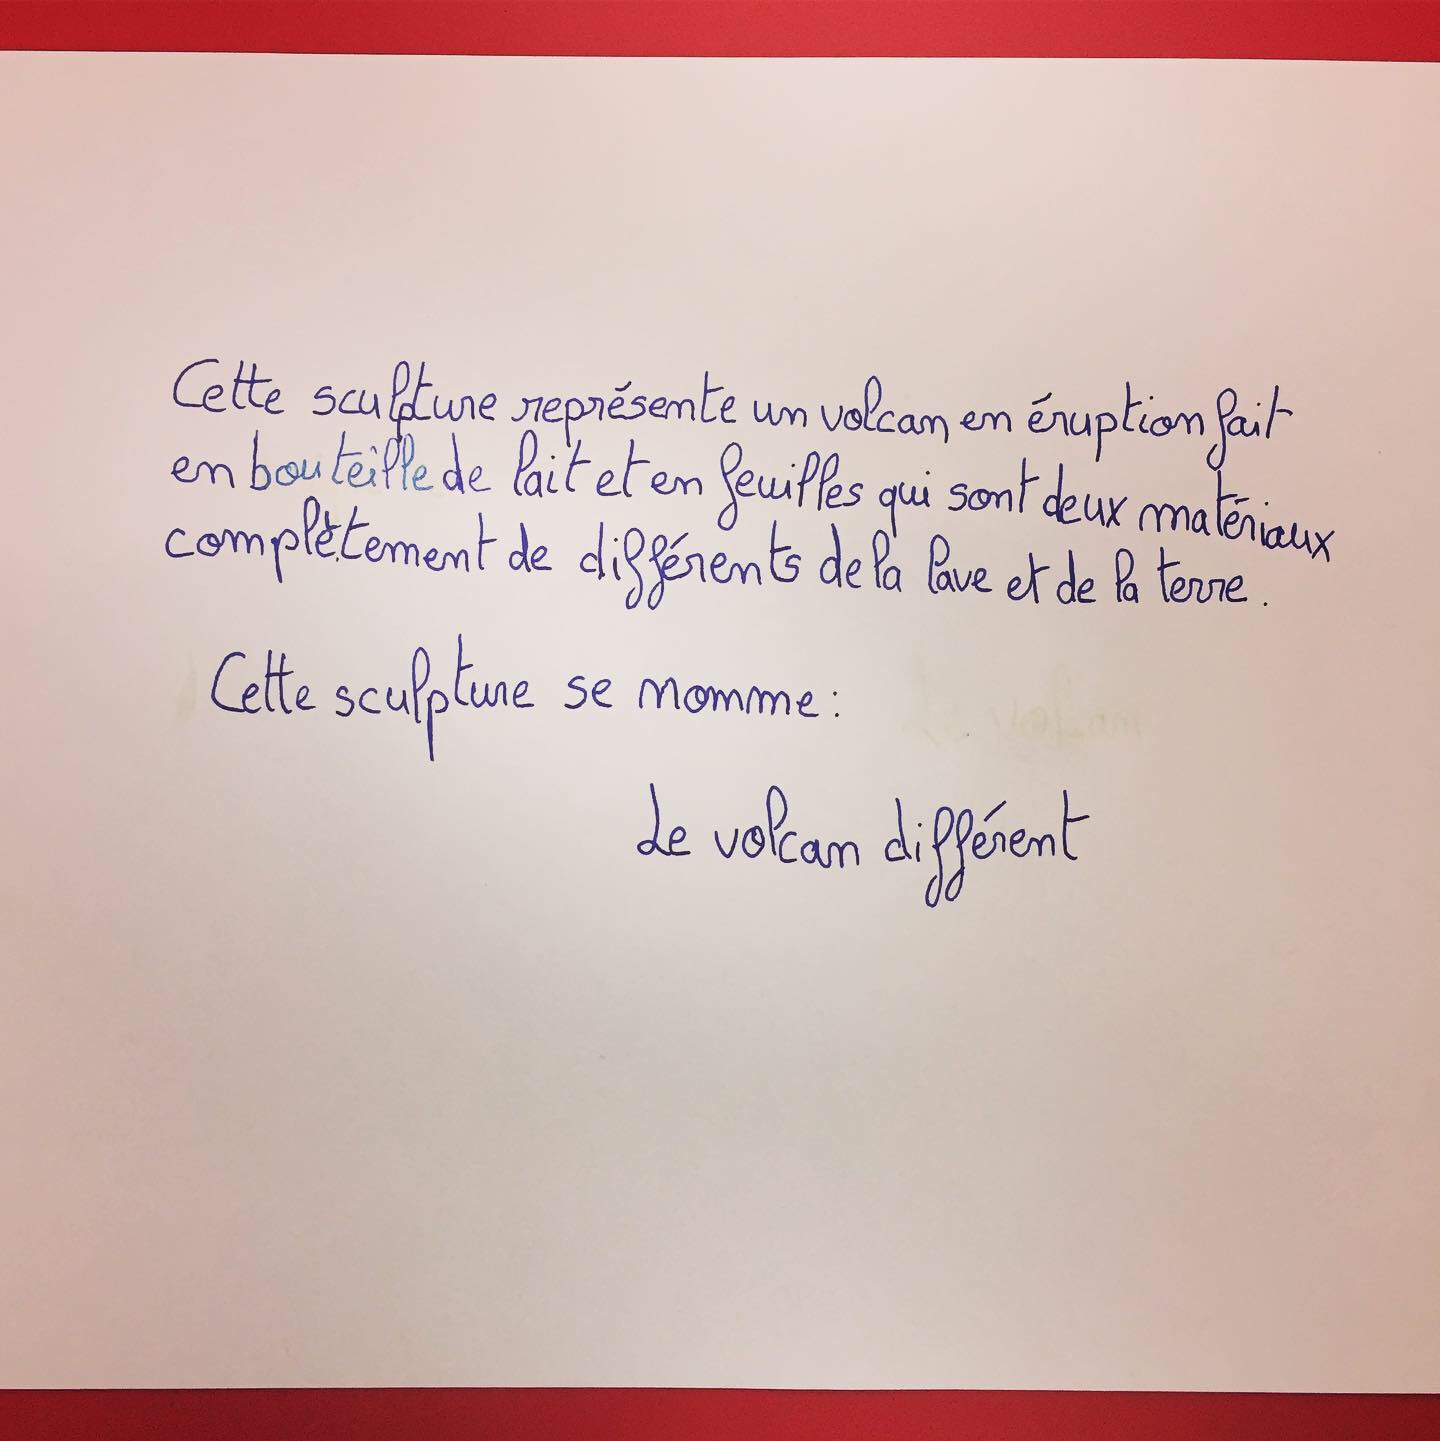 Cette sculpture représente un volcan en éruption fait
en bouteille de lait et en feuilles qui sont deux matériaux
complètement de différents de la lave et de la terre.
Cette sculpture se nomme :
Le volcan différent